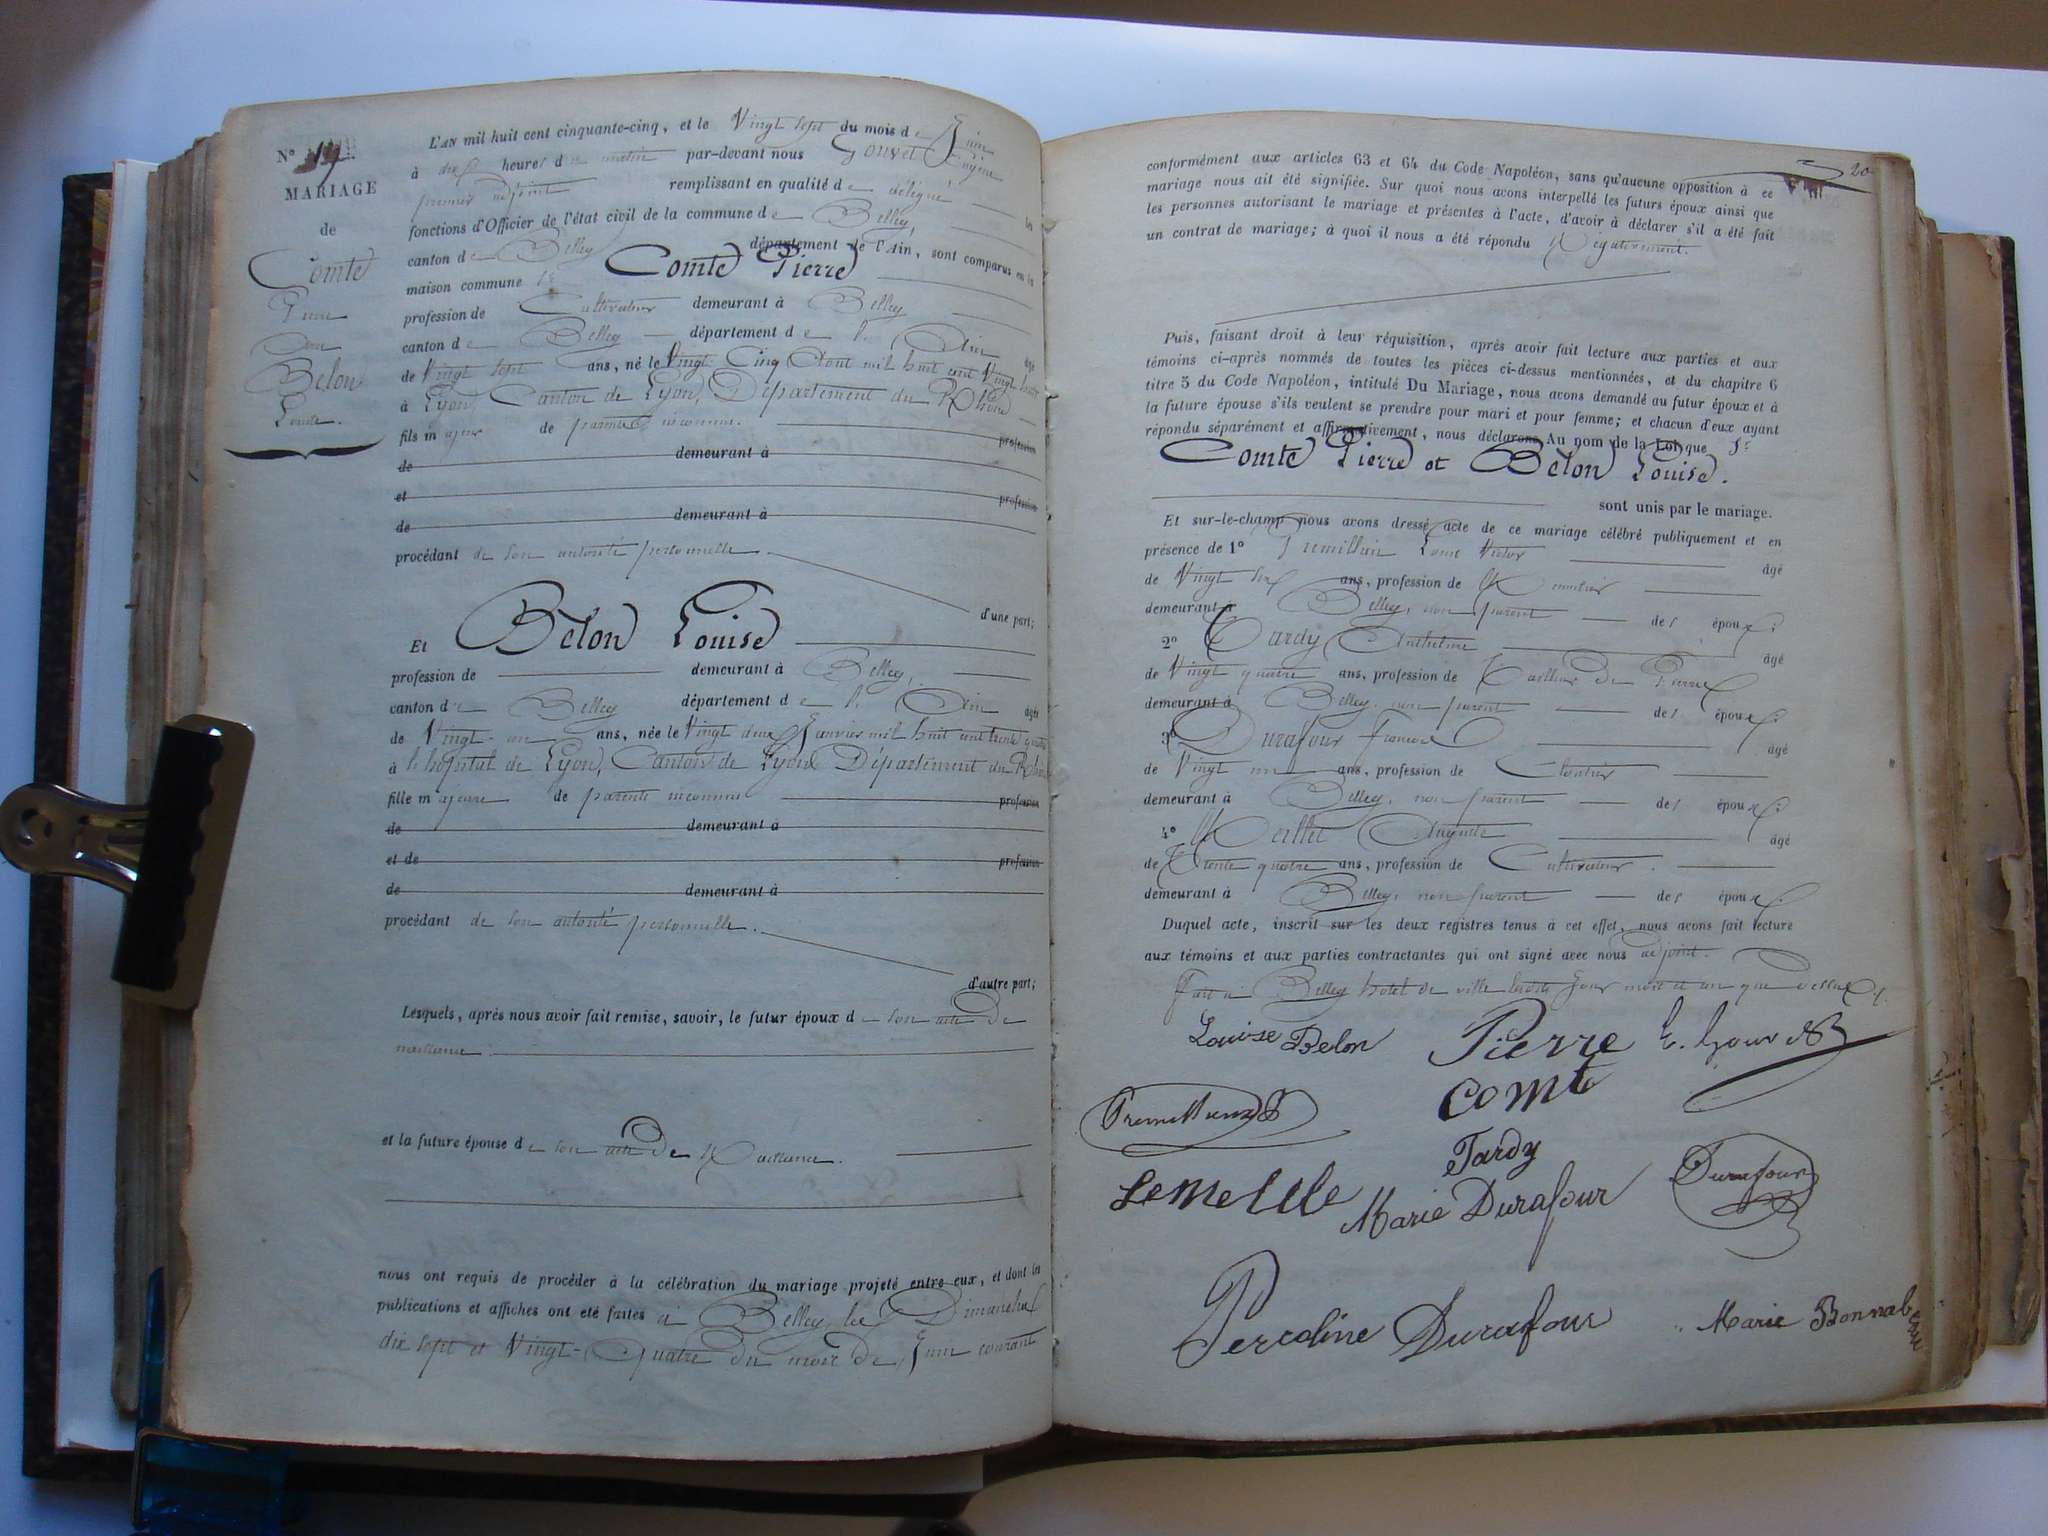 N° 19.
MARIAGE
de
Comte
Pierre
et
Belon
Louise.
L'AN mil huit cent cinquante-cinq, et le Vingt sept du mois de Juin
à dix heures du matin par-devant nous Gouvet Eugène
premier adjoint remplissant en qualité de délégué les
fonctions d'Officier de l'état civil de la commune de Belley,
canton de Belley département de l'Ain, sont comparus en la
maison commune Sr Comte Pierre
profession de Cultivateur demeurant à Belley
canton de Belley département de l' Ain âgé
de Vingt sept ans, né le Vingt Cinq Aout mil huit cent Vingt huit
à Lyon, Canton de Lyon, Département du Rhône
fils majeur de parents inconnus. profession
de demeurant à
et profession
de demeurant à
procédant de son autorité personnelle.
d'une part;
Et Belon Louise
profession de demeurant à Belley,
canton de Belley département de l' Ain âgée
de Vingt-un ans, née le Vingt deux Janvier mil huit cent trente quatre
à l'hôpital de Lyon, Canton de Lyon Département du Rhône
fille majeure de parents inconnus profession
de demeurant à
et de profession
de demeurant à
procédant de son autorité personnelle.
d'autre part;
Lesquels, après nous avoir fait remise, savoir, le futur époux de son acte de
naissance.
et la future épouse de son acte de Naissance.
nous ont requis de procéder à la célébration du mariage projeté entre eux, et dont les
publications et affiches ont été faites à Belley les Dimanches
dix sept et Vingt-Quatre du mois de Juin courant
20
conformément aux articles 63 et 64 du Code Napoléon, sans qu'aucune opposition à ce
mariage nous ait été signifiée. Sur quoi nous avons interpellé les futurs époux ainsi que
les personnes autorisant le mariage et présentes à l'acte, d'avoir à déclarer s'il a été fait
un contrat de mariage; à quoi il nous a été répondu Négativement.
Puis, faisant droit à leur réquisition, après avoir fait lecture aux parties et aux
témoins ci-après nommés de toutes les pièces ci-dessus mentionnées, et du chapitre 6
titre 5 du Code Napoléon, intitulé Du Mariage, nous avons demandé au futur époux et à
la future épouse s'ils veulent se prendre pour mari et pour femme; et chacun d'eux ayant
répondu séparément et affirmativement, nous déclarons Au nom de la Loi que Sr
Comte Pierre et Belon Louise.
sont unis par le mariage.
Et sur-le-champ nous avons dressé acte de ce mariage célébré publiquement et en
présence de 1° Premillieu Louis Victor âgé
de Vingt six ans, profession de
demeurant à Belley, non parent des époux;
2° Tardy Anthelme âgé
de Vingt quatre ans, profession de Tailleur de Pierre
demeurant à Belley, non parent des époux;
3° Durafour François âgé
de Vingt un ans, profession de Cloutier
demeurant à Belley, non parent des époux;
4° Auguste âgé
de Trente quatre ans, profession de Cultivateur.
demeurant à Belley, non parent des époux.
Duquel acte, inscrit sur les deux registres tenus à cet effet, nous avons fait lecture
aux témoins et aux parties contractantes qui ont signé avec nous adjoint.
Fait à Belley hotel de ville lesdits jour mois et an que dessus.
Louise Belon Pierre E. Gouvet
comte
Tardy
Marie Durafour Durafour
Percoline Durafour Marie Bonnabesse